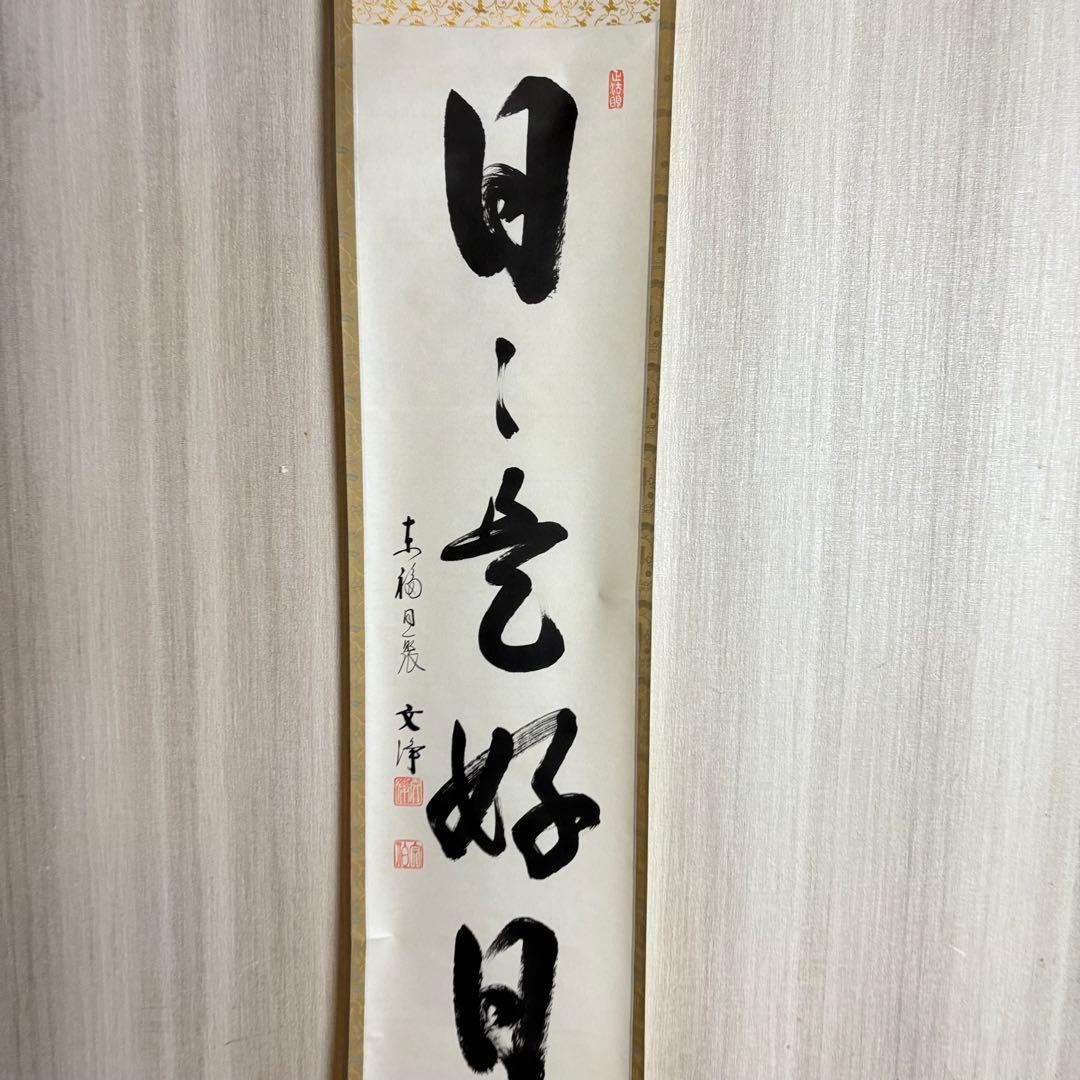 日々是好日
東福目聚
文浄